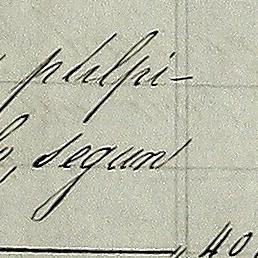 pulpi-
segun
40